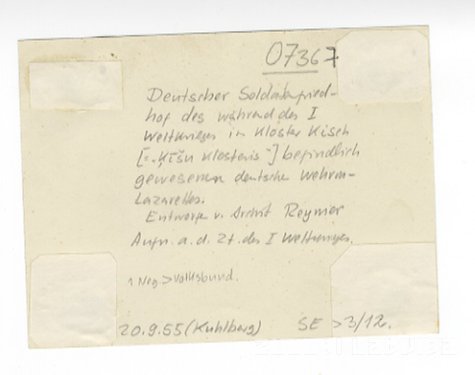 07367
Deutscher Soldatenfried-
hof des während des I
Weltkrieges in Kloster Kisch
[= „Ķīšu klosteris"] befindlich
gewesenen deutsche
Lazarettes.
Entworfen v. Archit Reymer
Aufn. a. d. Zt. des I Weltkrieges.
1 Neg > Volksbund.
20.9.55 (Kuhlberg) SE > 3/12.